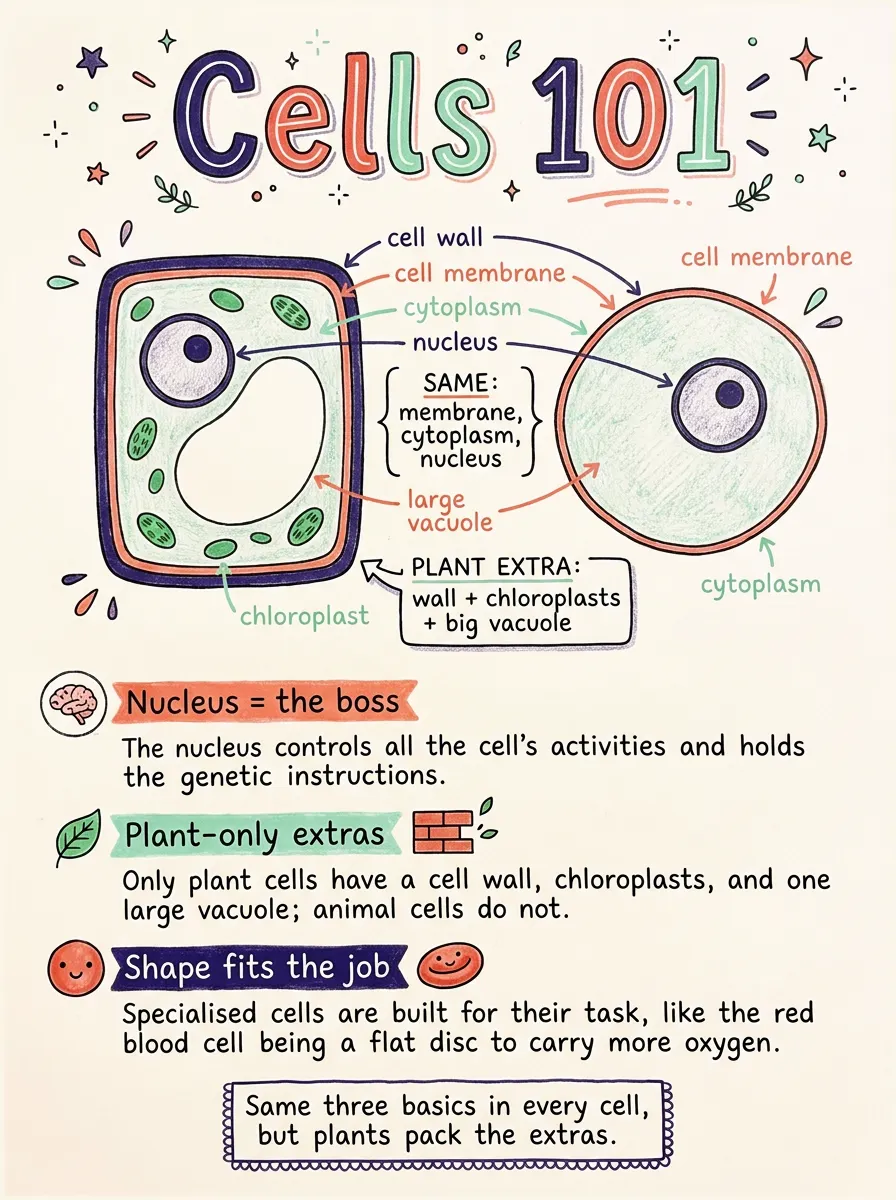 Cells 101
cell wall
cell membrane
cytoplasm
nucleus
cell membrane
SAME:
membrane,
cytoplasm,
nucleus
large
vacuole
PLANT EXTRA:
wall + chloroplasts
+ big vacuole
chloroplast
cytoplasm
Nucleus = the boss
The nucleus controls all the cell's activities and holds
the genetic instructions.
Plant-only extras
Only plant cells have a cell wall, chloroplasts, and one
large vacuole; animal cells do not.
Shape fits the job
Specialised cells are built for their task, like the red
blood cell being a flat disc to carry more oxygen.
Same three basics in every cell,
but plants pack the extras.